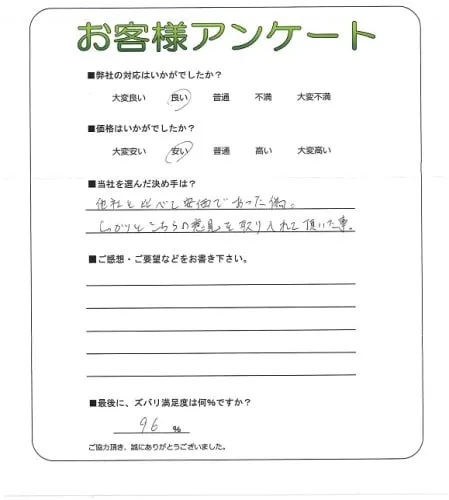 お客様アンケート
■弊社の対応はいかがでしたか？
大変良い 良い 普通 不満 大変不満
■価格はいかがでしたか？
大変安い 安い 普通 高い 大変高い
■当社を選んだ決め手は？
他社と比べし安価であった為。
しっかりとこちらの意見を取り入れて頂いた事。
■ご感想・ご要望などをお書き下さい。
■最後に、ズバリ満足度は何％ですか？
96 %
ご協力頂き、誠にありがとうございました。